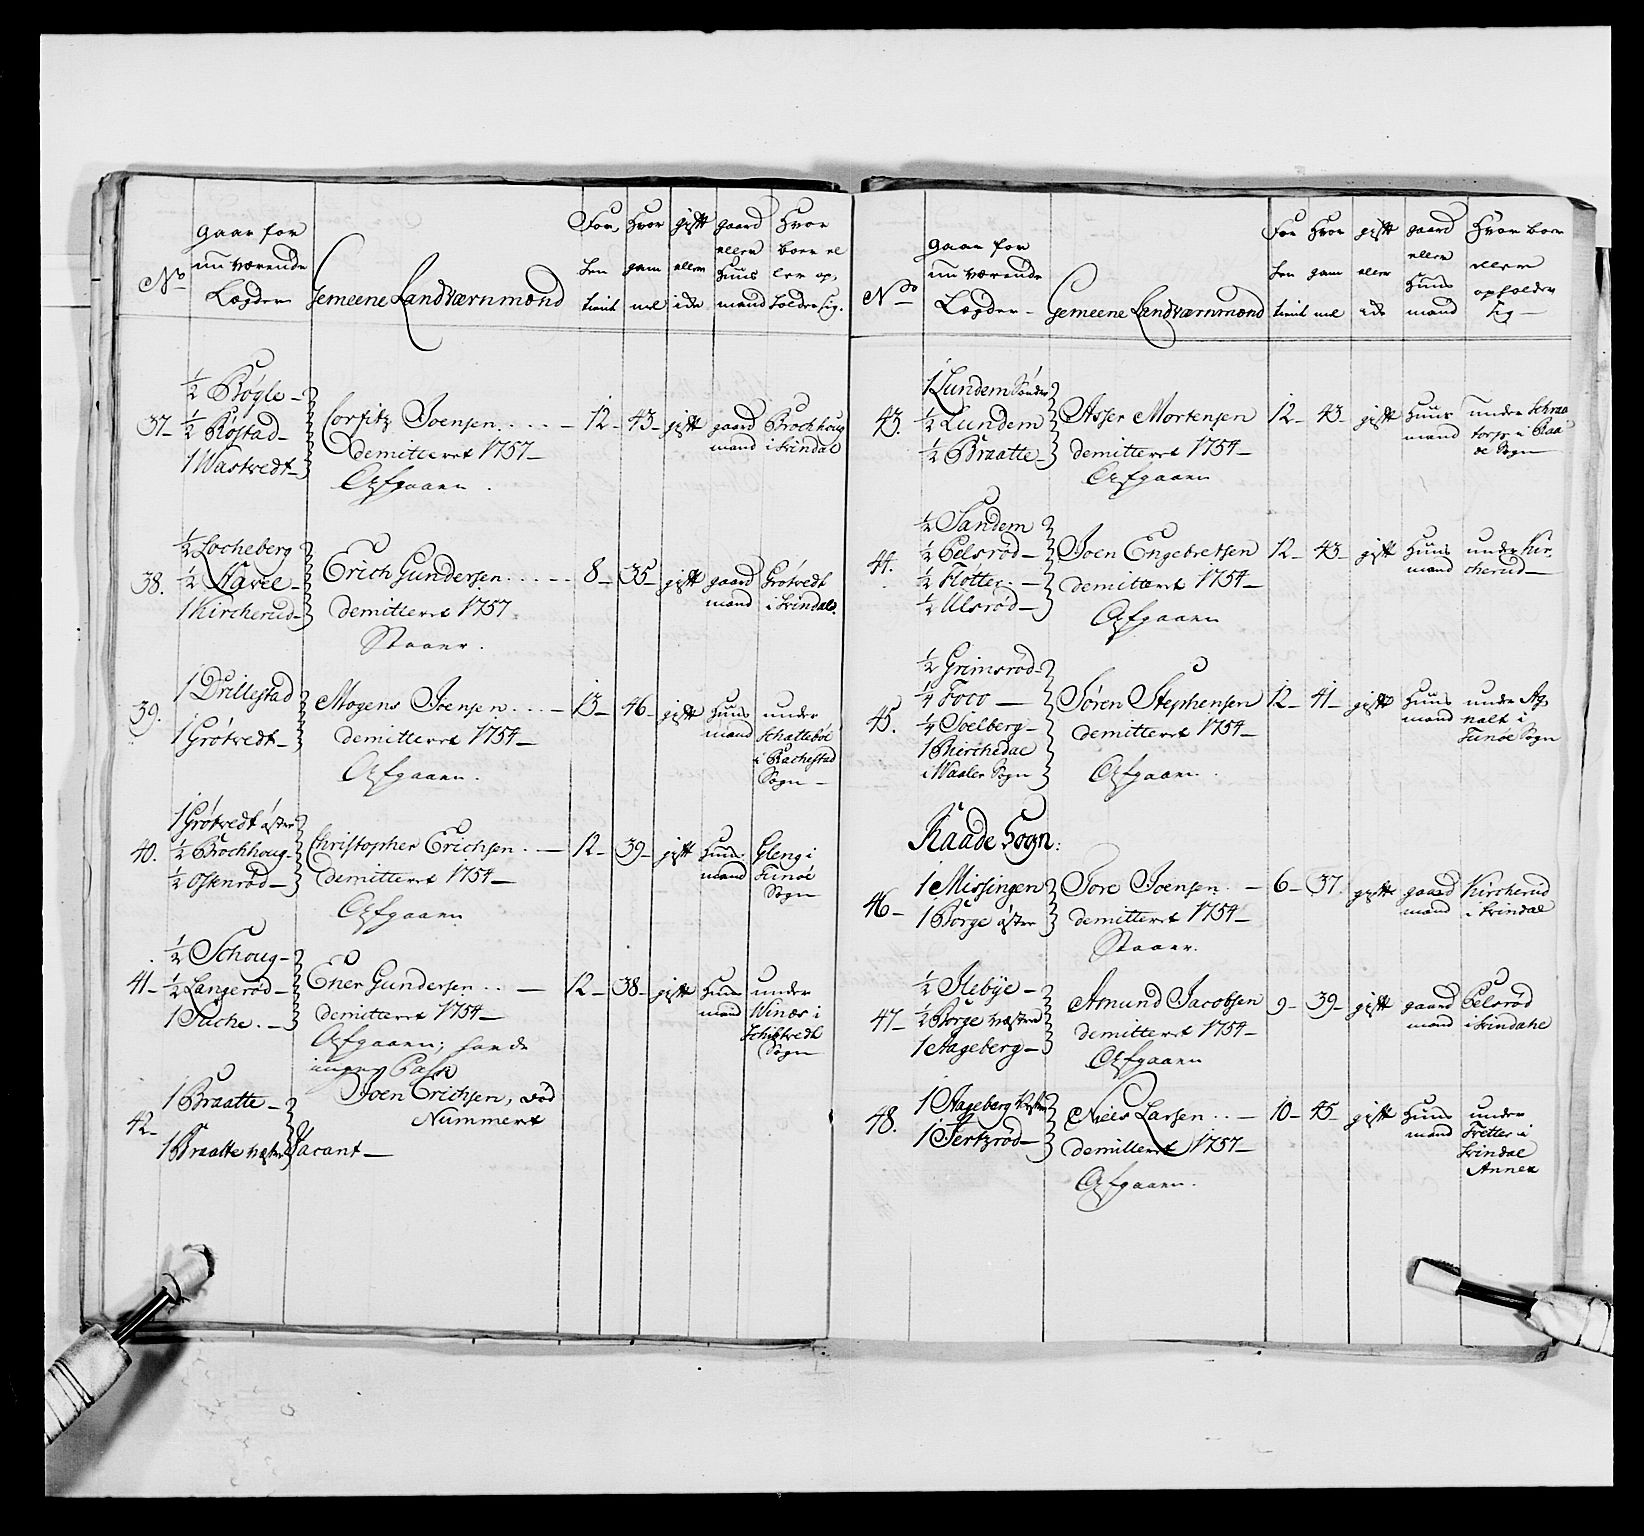 No
gaar for
nu værende
Lægder
Gemeene Landværnmænd
For
hen
tient
Hvor
gam
mel
gift
eller
ide
gaard
eller
Huus
mand
Hvor
boer el
ler op,
holder sig.
37-
½ Bøgle-
½ Røstad-
1 Wastvedt-
Corfitz Joensen
demitteret 1757-
Afgaaen.
12-
43-
gift
gaard
mand
Brochhoug
i Svindal
38.
½ Locheberg
½ Navee-
1 Kircherud-
Erich Gundersen
demitteret 1757
Staaer.
8-
35-
gift
gaard
mand
Grøtvedt
i Svindal.
39.
1 Drillestad
1 Grøtvedt-
Mogens Joensen
demitteret 1754-
Afgaaen.
13-
46-
gift
Huus
mand
under
Schattebøe
i Rachestad
Sogn-
40.
1 Grøtvedt østre
½ Brochhoug-
½ Ostenrød-
Christopher Erichsen
demitteret 1754-
Afgaaen
12-
39-
gift
Huus
mand
Gleng i
Tunøe
Sogn
41-
½ Schoug-
½ Langerød-
1 Tache.-
Ener Gundersen
demitteret 1754-
Afgaaen; hande
ingen Pass
12-
38-
gift
Huus
mand
under
Winæs i
Schibtvedt
Sogn
42-
1 Braatte-
1 Braatte Næstre
Joen Erichsen, ved
Nummert
Vacant-
No
gaar for
nu værende
Lægder-
Gemeene Landværnmænd
For
hen
tient
Hvor
gam
mel
gift
eller
ide
gaard
eller
Huus
mand
Hvor boer
eller
opholder
sig-
43.
1 Lundem Søndre
½ Lundem
½ Braatte-
Asser Mortensen
demitteret 1754-
Afgaaen
12-
43-
gift
Huus
mand
under Schraa
torp i Raa
de Sogn
44.
½ Sandem
½ Pelsrød-
½ Fløtter.-
½ Ulsrød-
Joen Engebretsen
demitteret 1754-
Afgaaen
12-
43-
gift
Huus
mand
under Kir-
cherud-
45.
½ Grimsrød-
¼ Foco-
¼ Soelberg-
1 Kirchedal
i Waaler Sogn
Søren Stephensen
demitteret 1754-
Afgaaen.
12-
41-
gift
Huus
mand
under Ag
nalt i
Tunøe Sogn
Raade Sogn:
46-
1 Missingen
1 Borge østre
Tore Joensen
demitteret 1754-
Staaer.
6-
37.
gift
gaard
mand
Kircherud
i Svindal
47-
½ Ilebye-
½ Borge Væstre
1 Aageberg-
Amund Jacobsen
demitteret 1754-
Afgaaen
9-
39-
gift
gaard
mand
Pelsrød
i Svindahl
48.
1 Aageberg Væstre
1 Tertzrød-
Niels Larsen
demitteret 1757-
Afgaaen.
10-
45
gift
Huus
mand
under
Tretter i
Svindal
Annex